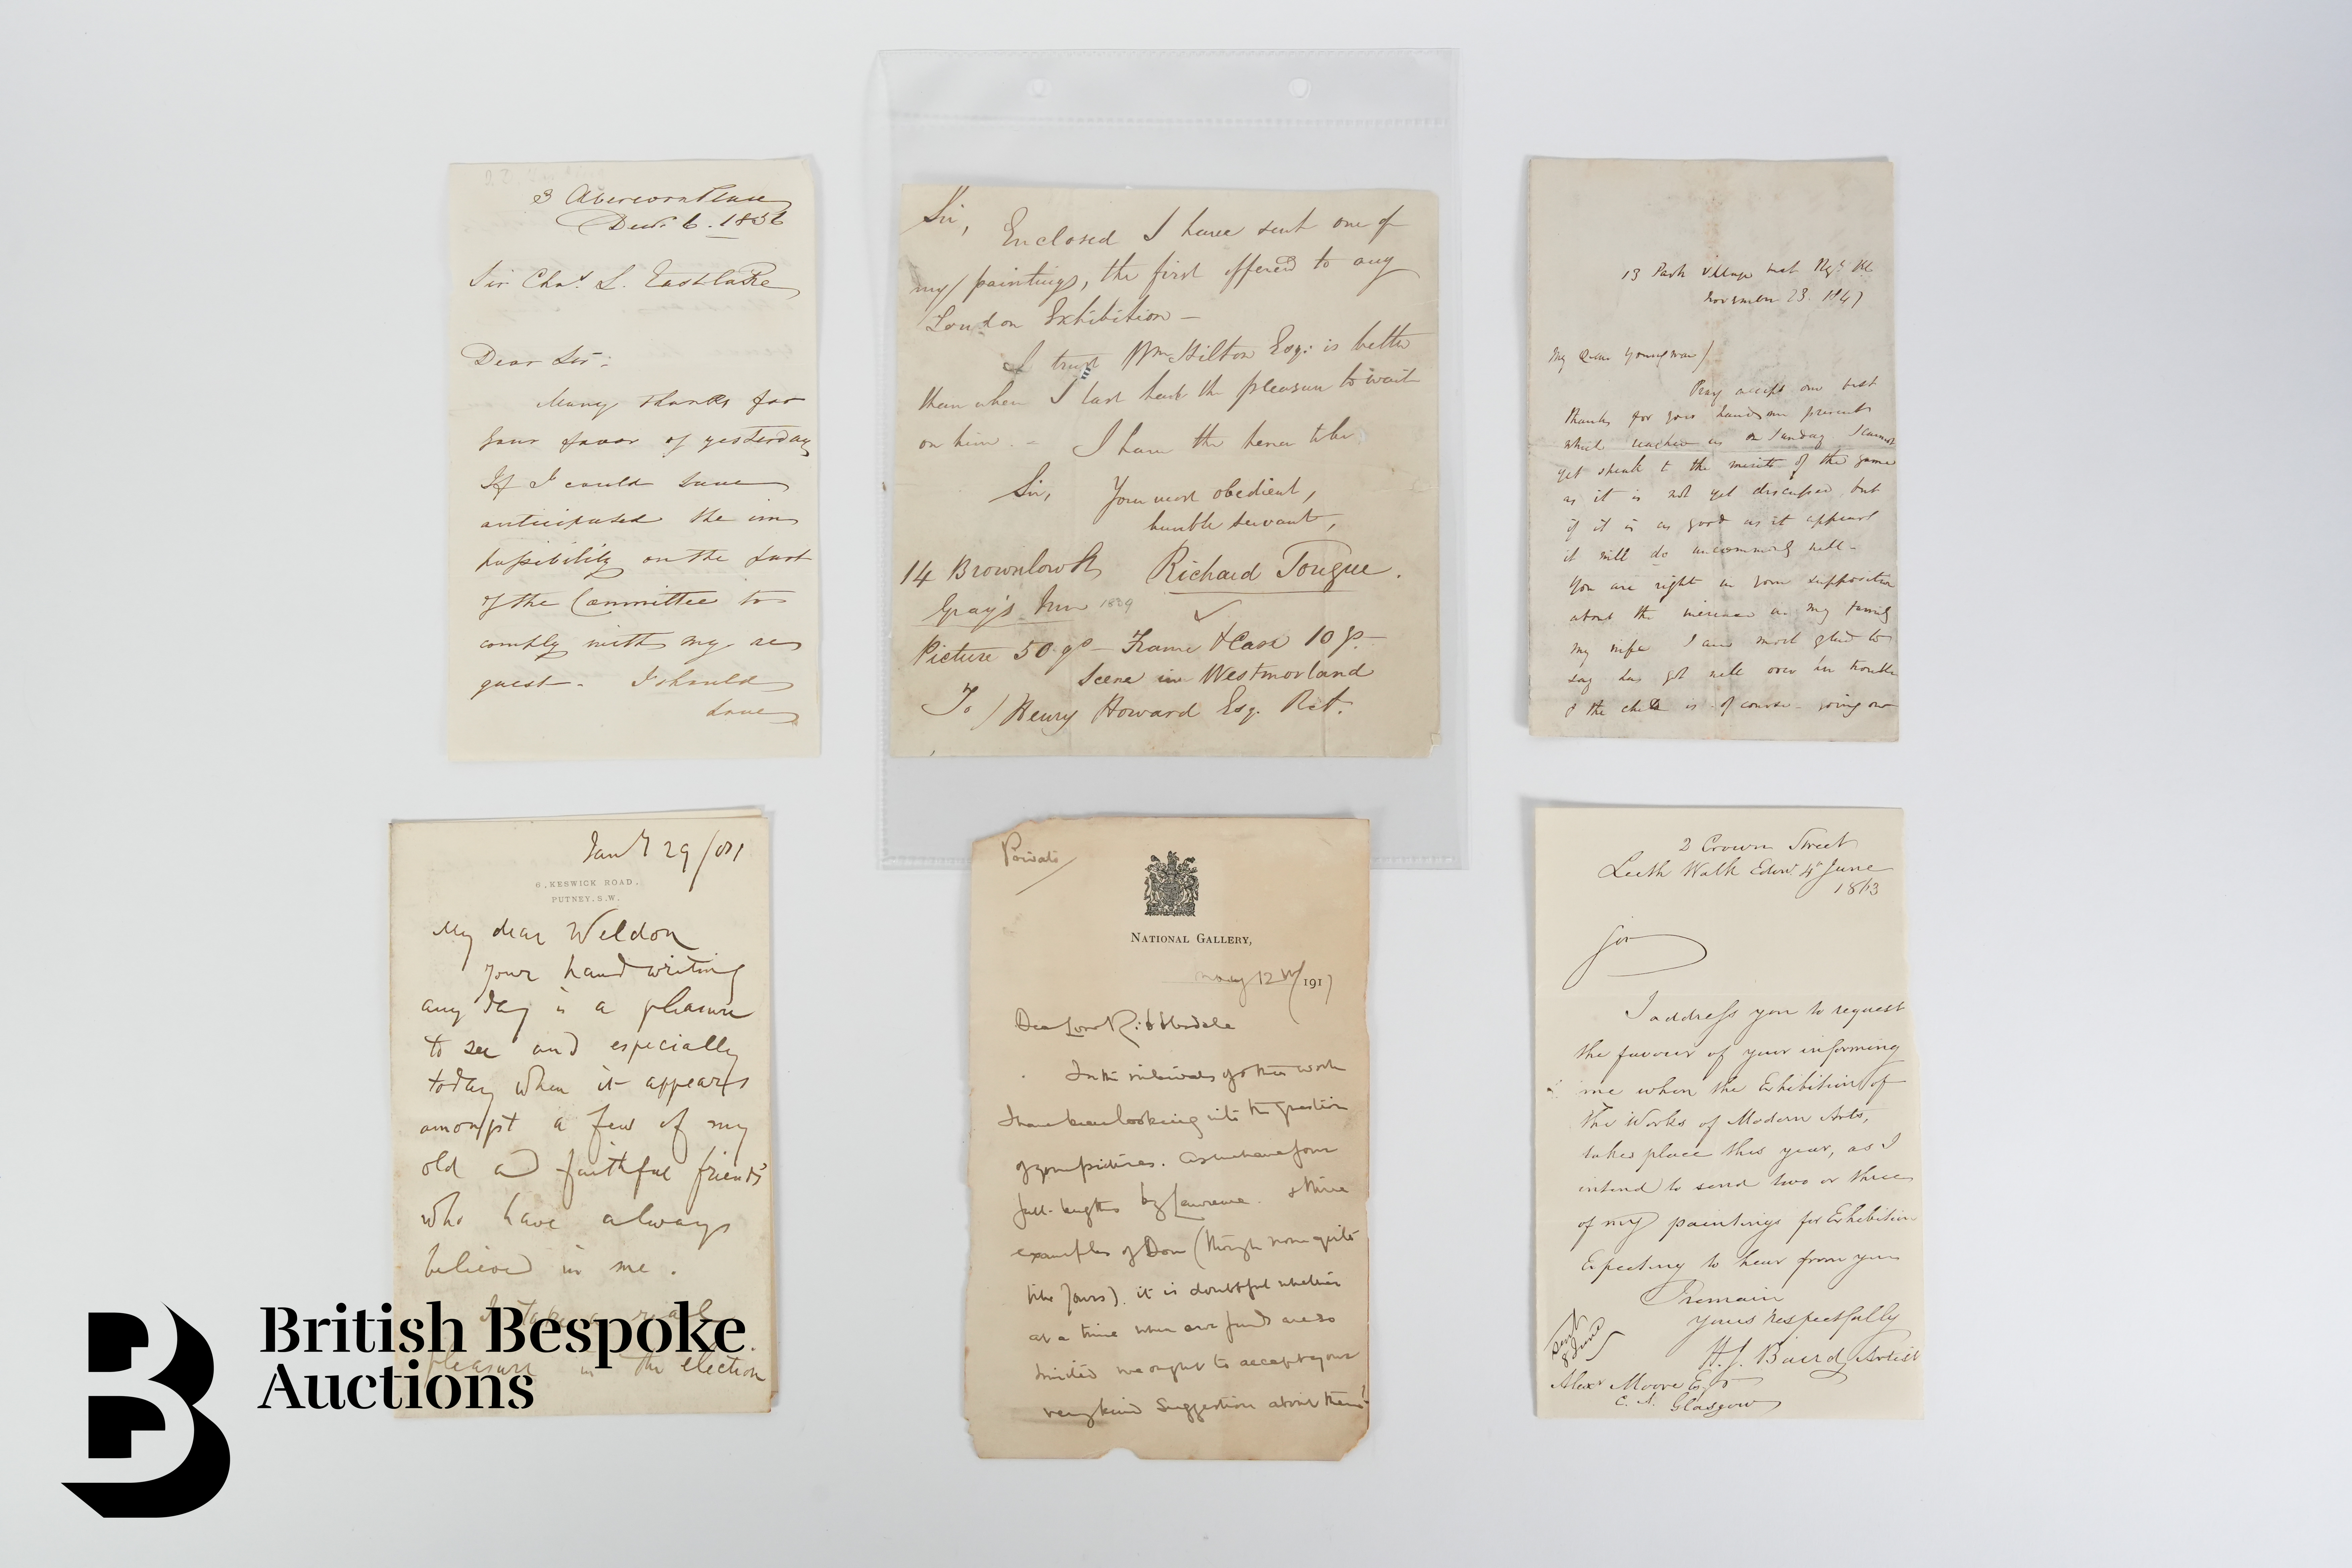 3 Abercorn Place
Decr. 6. 1856
Sir Chas. L. Eastlake
Dear Sir:
Many thanks for
your favor of yesterday
If I could have
anticipated the im
possibility on the part
of the Committee to
comply with my re
quest - I should
have
Sir,
Enclosed I have sent one of
my paintings, the first offered to any
London Exhibition -
I trust Wm Hilton Esq: is better
than when I last had the pleasure to wait
on him. - I have the honor to be
Sir, Your most obedient,
humble servant,
14 Brownlow St Richard Tongue.
Gray's Inn 1839
Picture 50 gs - Frame & Case 10 gs -
Scene in Westmorland
To / Henry Howard Esq. R.A.
13 Park Village West Regts Pk
November 23 1847
My dear Youngman /
Pray accept our best
thanks for your handsome present
which reached us on Sunday I cannot
yet speak to the merits of the game
as it is not yet discussed but
if it is as good as it appears
it will do uncommonly well -
You are right in your supposition
about the increase in my family
my wife I am most glad to
say has got well over her trouble
& the child is of course - going on
Jany 29/01
6, KESWICK ROAD.
PUTNEY. S.W.
My dear Weldon
Your handwriting
any day is a pleasure
to see and especially
today when it appears
amongst a few of my
old and faithful friends
who have always
believed in me.
I take a real
pleasure in the election
Private
NATIONAL GALLERY,
May 12th 1917
Dear Lord Ribblesdale
In the intervals of other work
I have been looking into the question
of your pictures. As we have four
full-lengths by Lawrence & three
examples of Dou (though none quite
like yours). it is doubtful whether
at a time when our funds are so
limited we ought to accept your
very kind suggestion about them!
2 Crown Street
Leith Walk Edinr. 4th June
1863
Sir
I address you to request
the favour of your informing
me when the Exhibition of
the Works of Modern Arts,
takes place this year, as I
intend to send two or three
of my paintings for Exhibition
Expecting to hear from you
I remain
yours respectfully
H. J. Baird, Artist
Sent
8 June
Alexr Moore Esqr
C. A. Glasgow
British Bespoke
Auctions